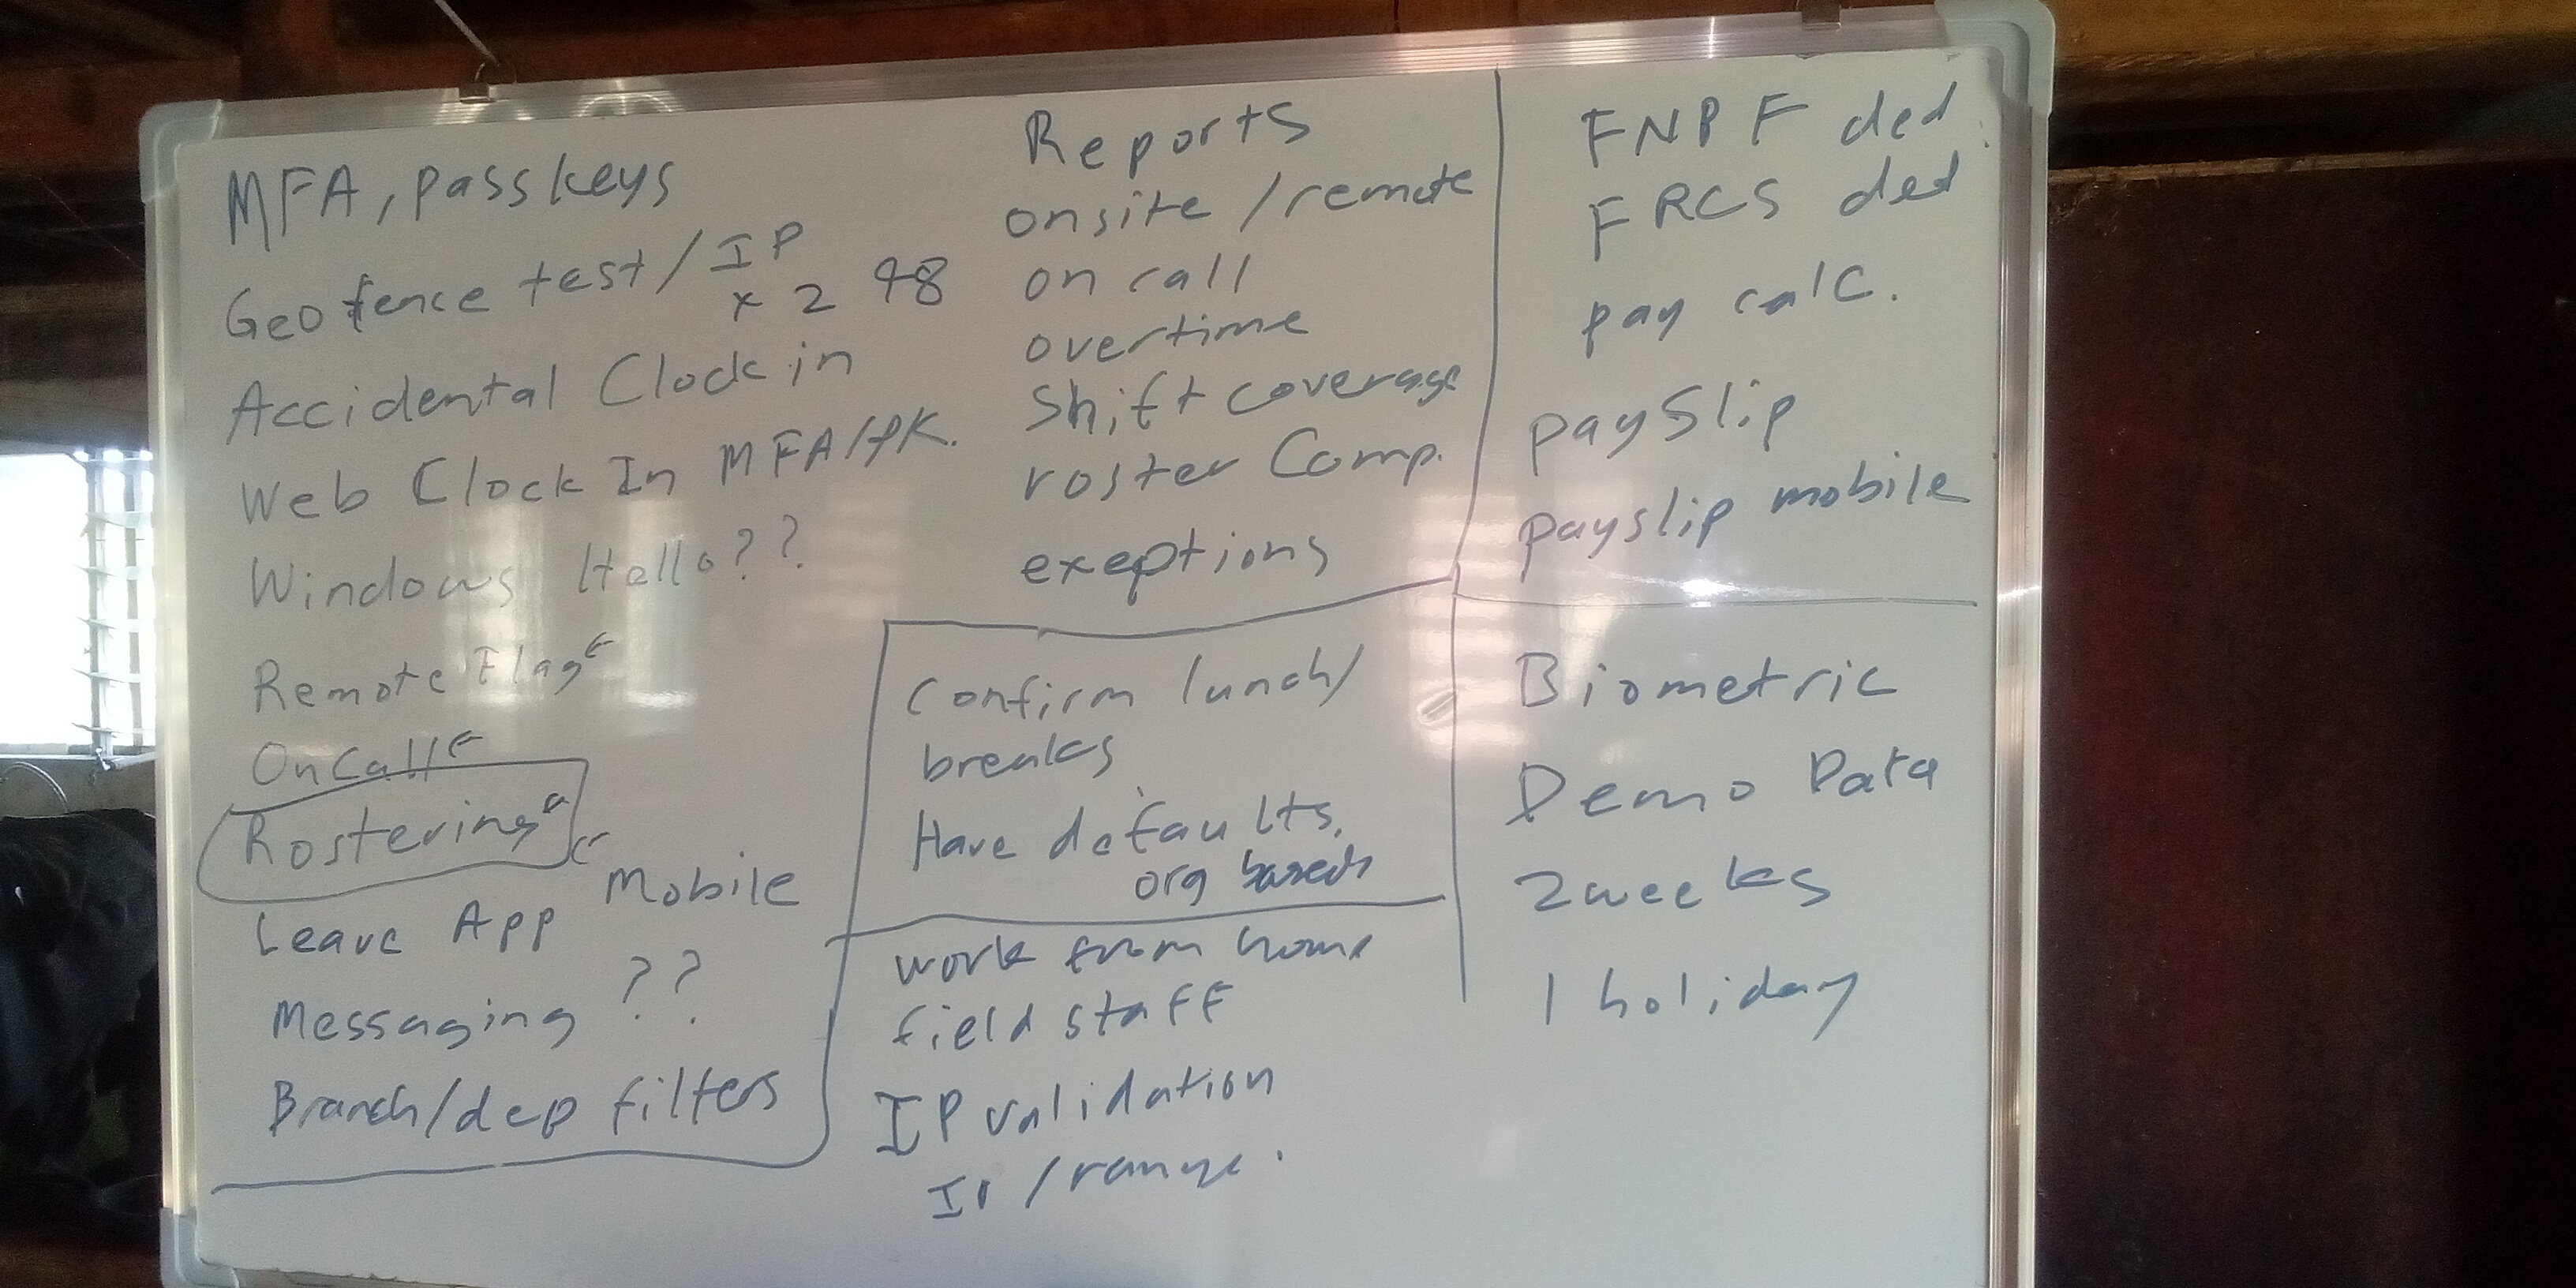 MFA, passkeys
Geofence test/IP
x 2 98
Accidental Clock in
Web Clock In MFA/PK.
Windows Hello??
Remote Flag
OnCall
Rostering
Mobile
Leave App
Messaging ??
Branch/dep filters
Reports
onsite/remote
on call
overtime
Shift coverage
roster Comp.
exeptions
Confirm lunch/
breaks
Have defaults,
org based
work from home
field staff
IP validation
IP/range.
FNPF ded.
FRCS ded
pay calc.
paySlip
payslip mobile
Biometric
Demo Data
2weeks
1 holiday